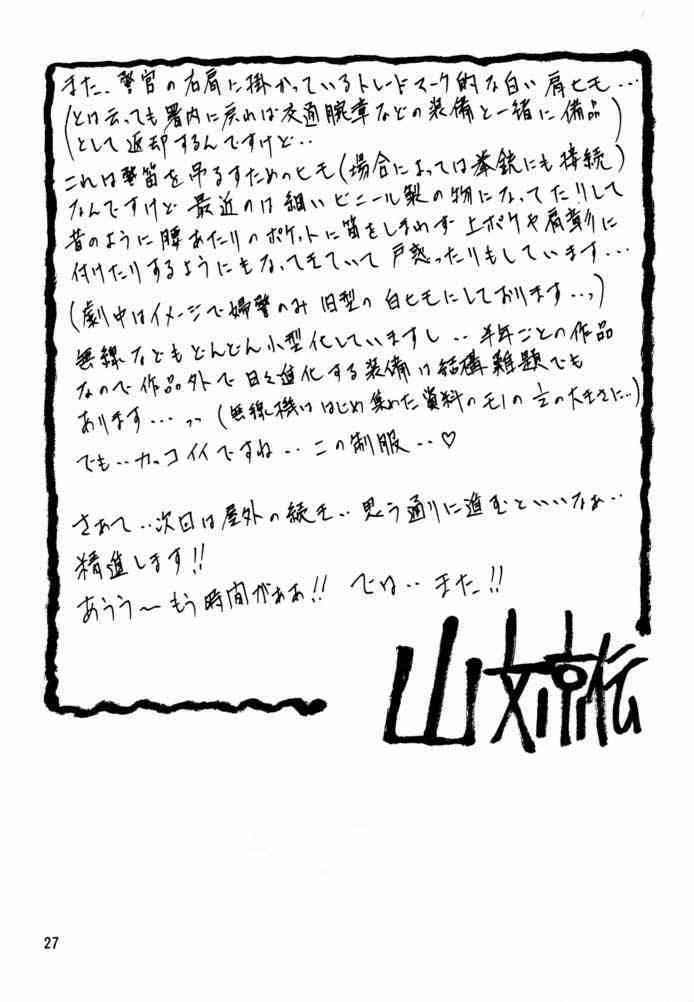 また、警官の右肩に掛かっているトレードマーク的な白い肩ヒモ…
(とは云っても署内に戻れば交通腕章などの装備と一緒に備品
として返却するんですけど…)
これは警笛を吊るすためのヒモ(場合によっては拳銃にも接続)
なんですけど最近のは細いビニール製の物になってたりして
昔のように腰あたりのポケットに笛をしまわず上ポケや肩章に
付けたりするようにもなってきていて戸惑ったりもしています…
(劇中はイメージで婦警のみ旧型の白ヒモにしております…)
無線などもどんどん小型化していますし‥半年ごとの作品
なので作品外で日々進化する装備は結構難題でも
あります…(無線機ははじめ集めた資料のモノの1/2の大きさに…)
でも‥カッコイイですね‥この制服‥♡
さあて‥次回は屋外の続き‥思う通りに進むといいなぁ‥
精進します!!
あうう〜もう時間がああ!! では‥また!!
山文京伝
27